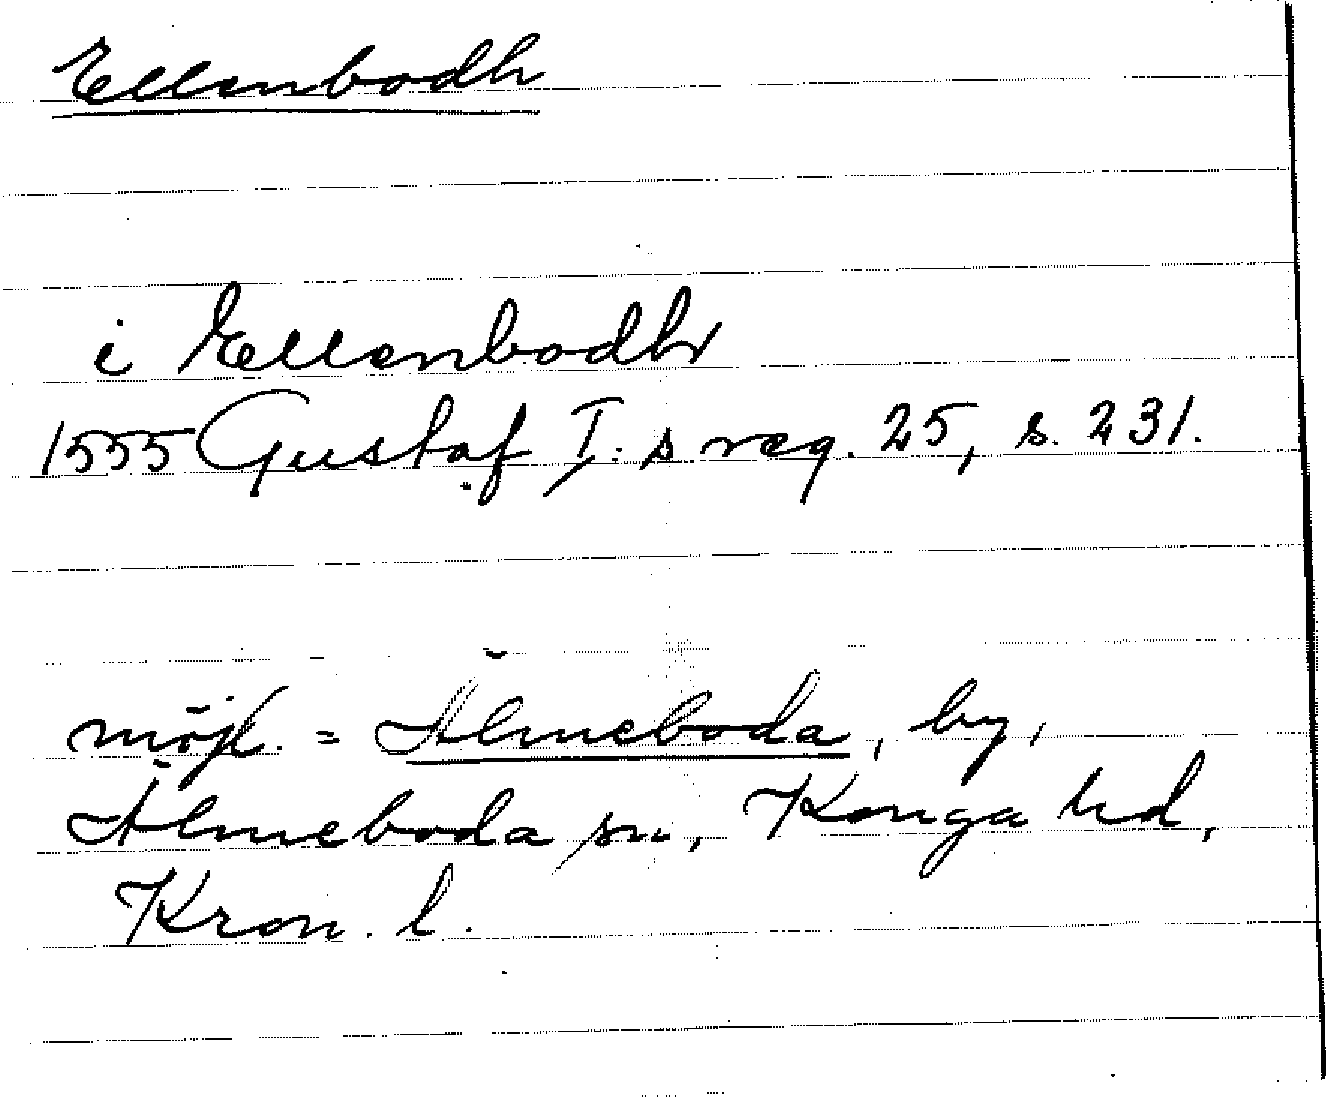 Ellenbodh
i Ellenbodh
1555 Gustaf I:s reg. 25, s. 231.
möjl. = Älmeboda, by,
Älmeboda sn, Konga hd,
Kron. l.